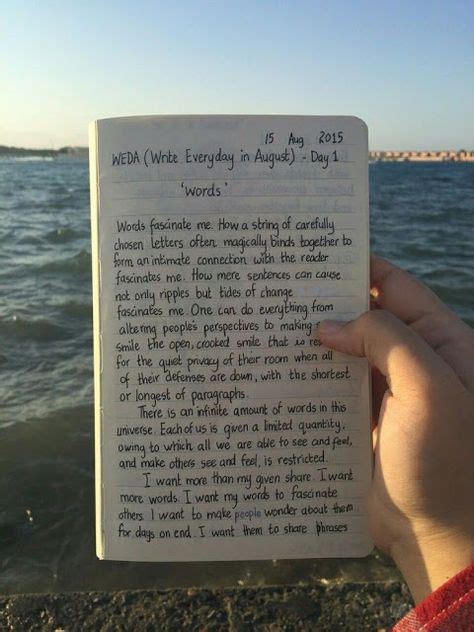 15 Aug 2015
WEDA (Write Everyday in August) - Day 1
'Words'
Words fascinate me. How a string of carefully
chosen letters often magically binds together to
form an intimate connection with the reader
fascinates me. How mere sentences can cause
not only ripples but tides of change
fascinates me. One can do everything from
altering people's perspectives to making
smile the open, crooked smile that is
for the quiet privacy of their room when all
of their defenses are down, with the shortest
or longest of paragraphs.
There is an infinite amount of words in this
universe. Each of us is given a limited quantity,
owing to which all we are able to see and feel,
and make others see and feel, is restricted.
I want more than my given share. I want
more words. I want my words to fascinate
others. I want to make people wonder about them
for days on end. I want them to share phrases